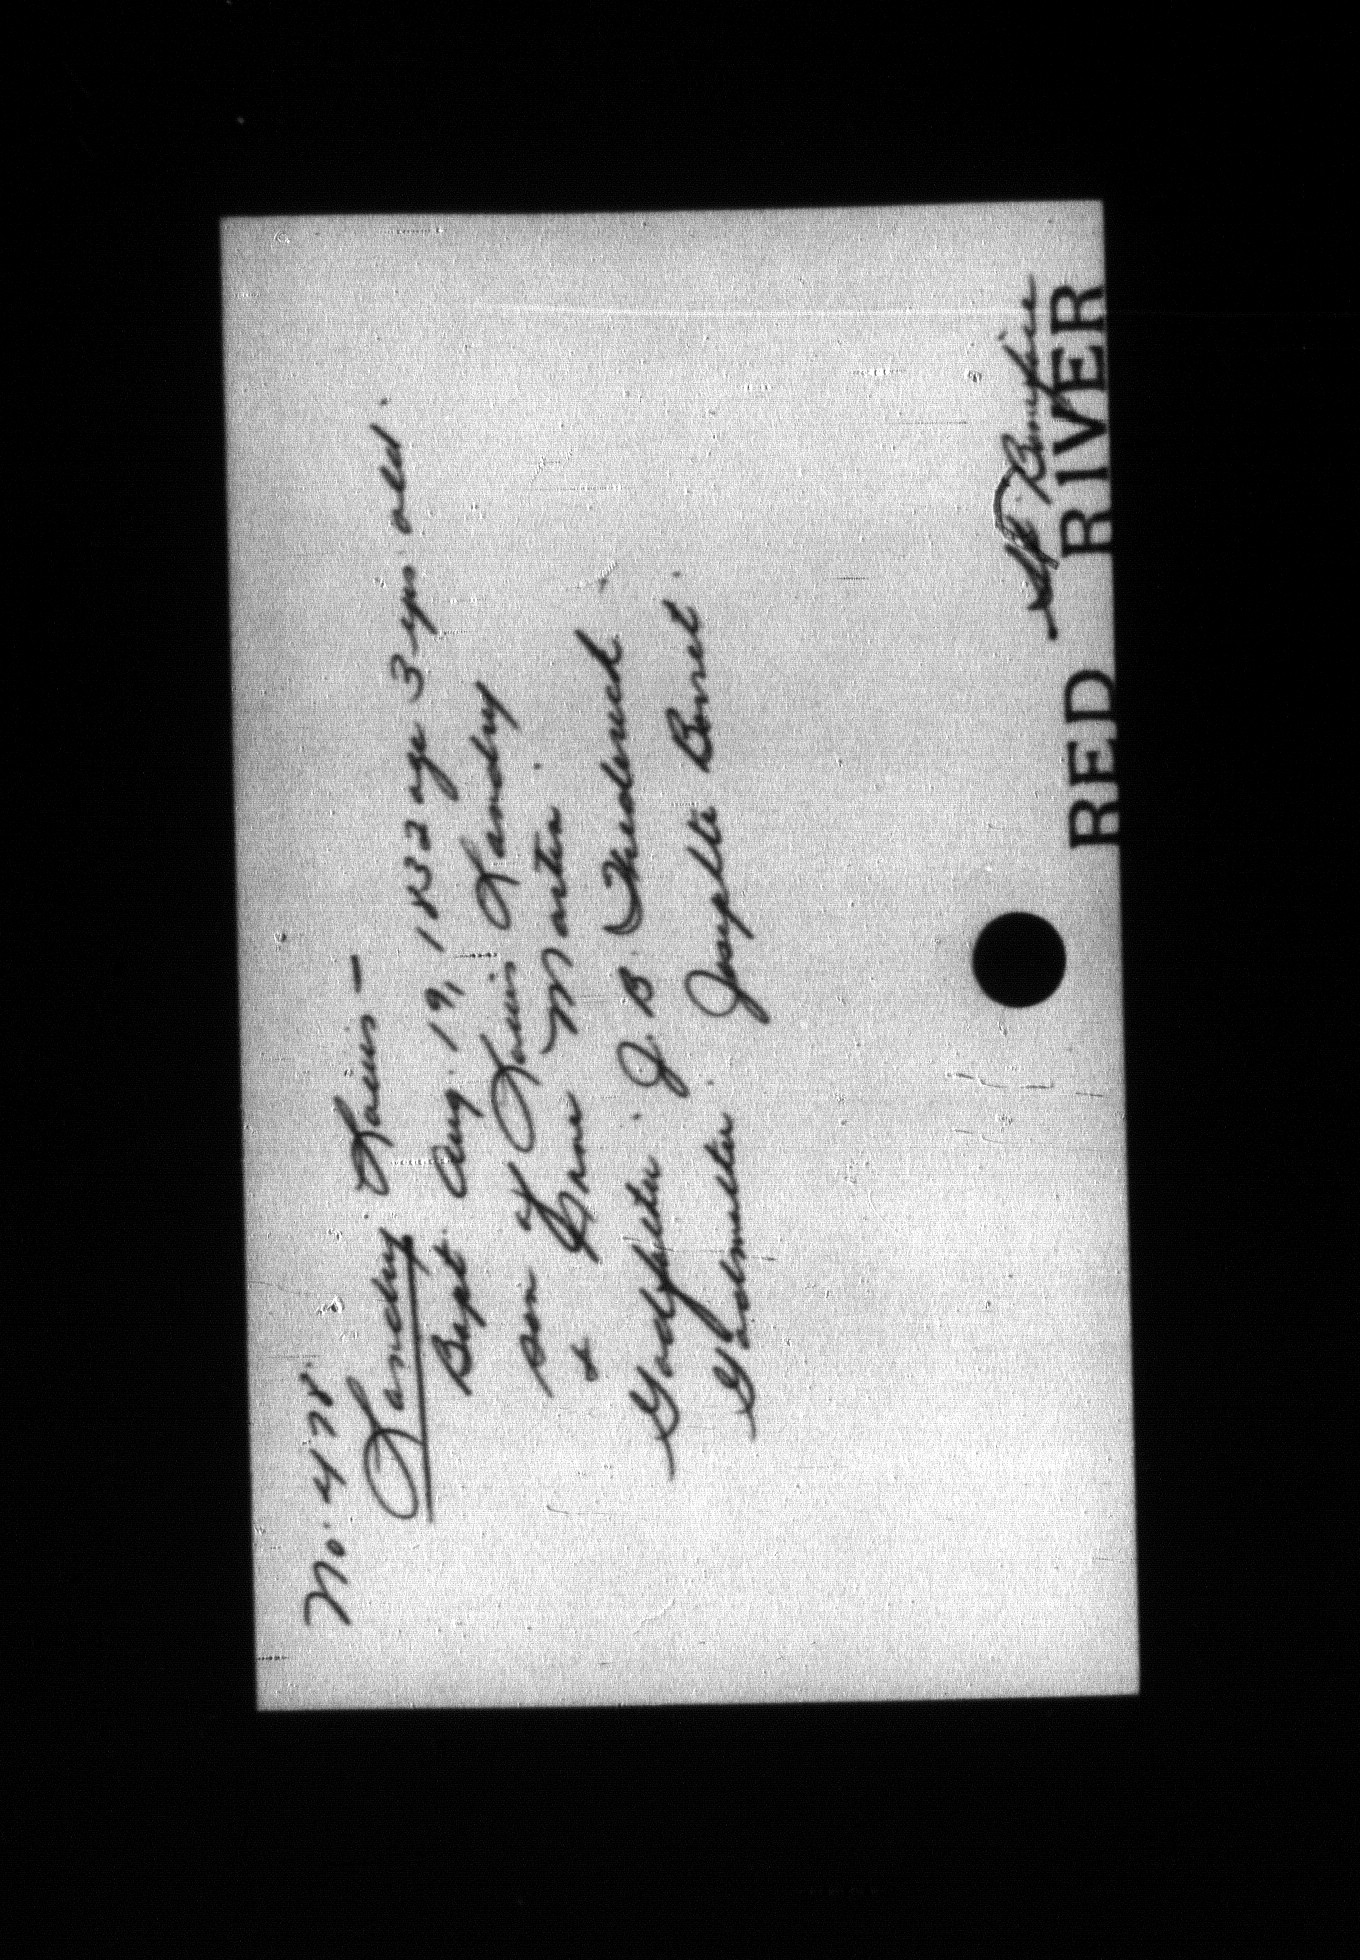 No. 478.
Landry Louis —
Bapt. Aug. 19, 1832 age 3 yrs. old.
son of Louis Landry
& Marten.
Godfather. J. B.
Godmother. Josephte
St. Boniface
RED RIVER